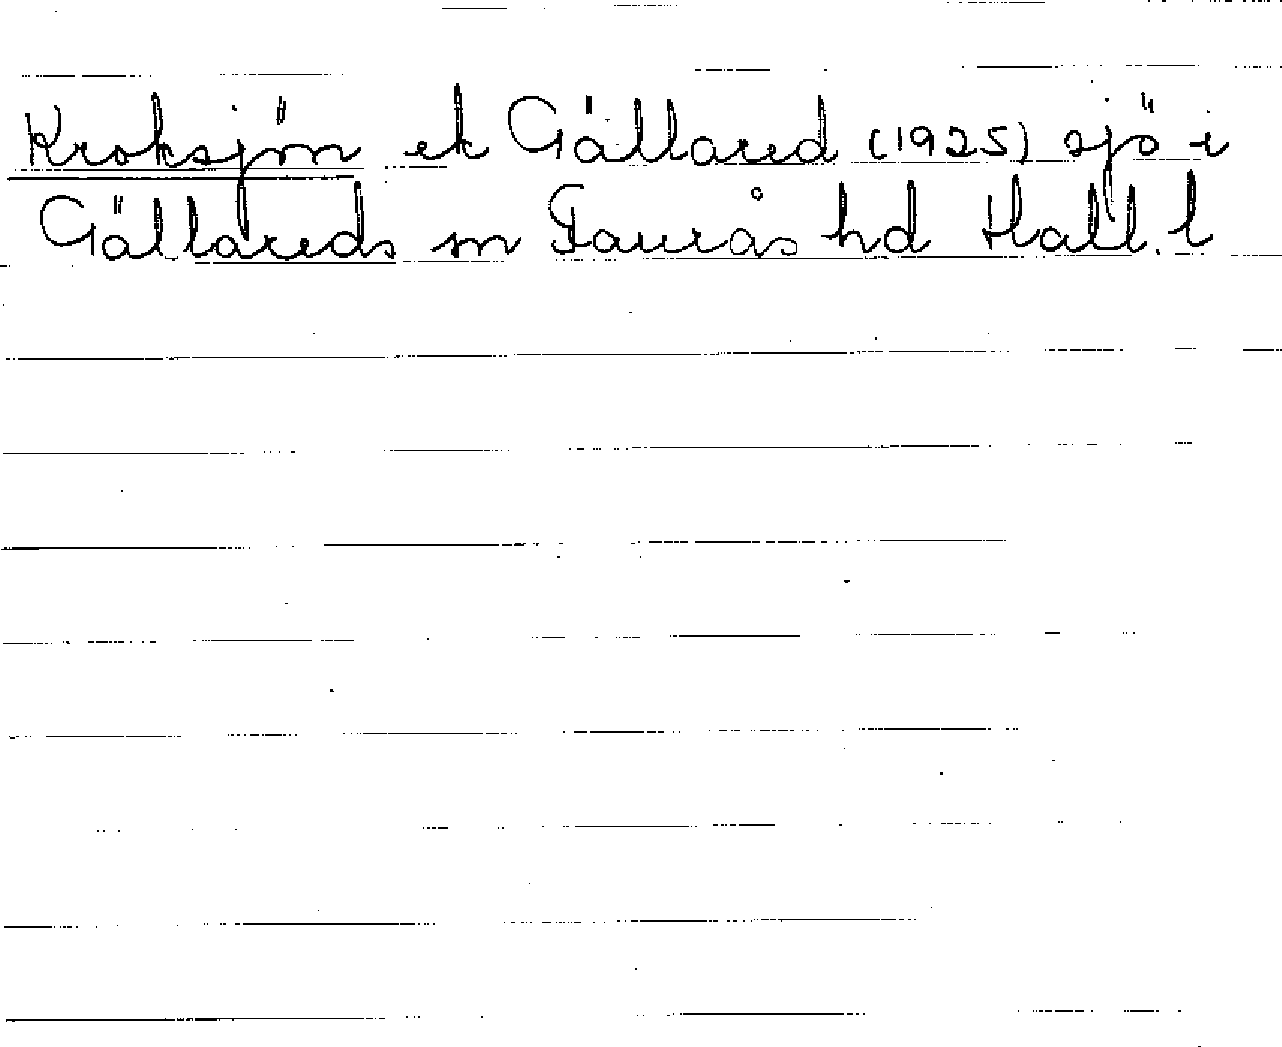 Kroksjön ek Gällared (1925) sjö i
Gällareds sn Faurås hd Hall. l